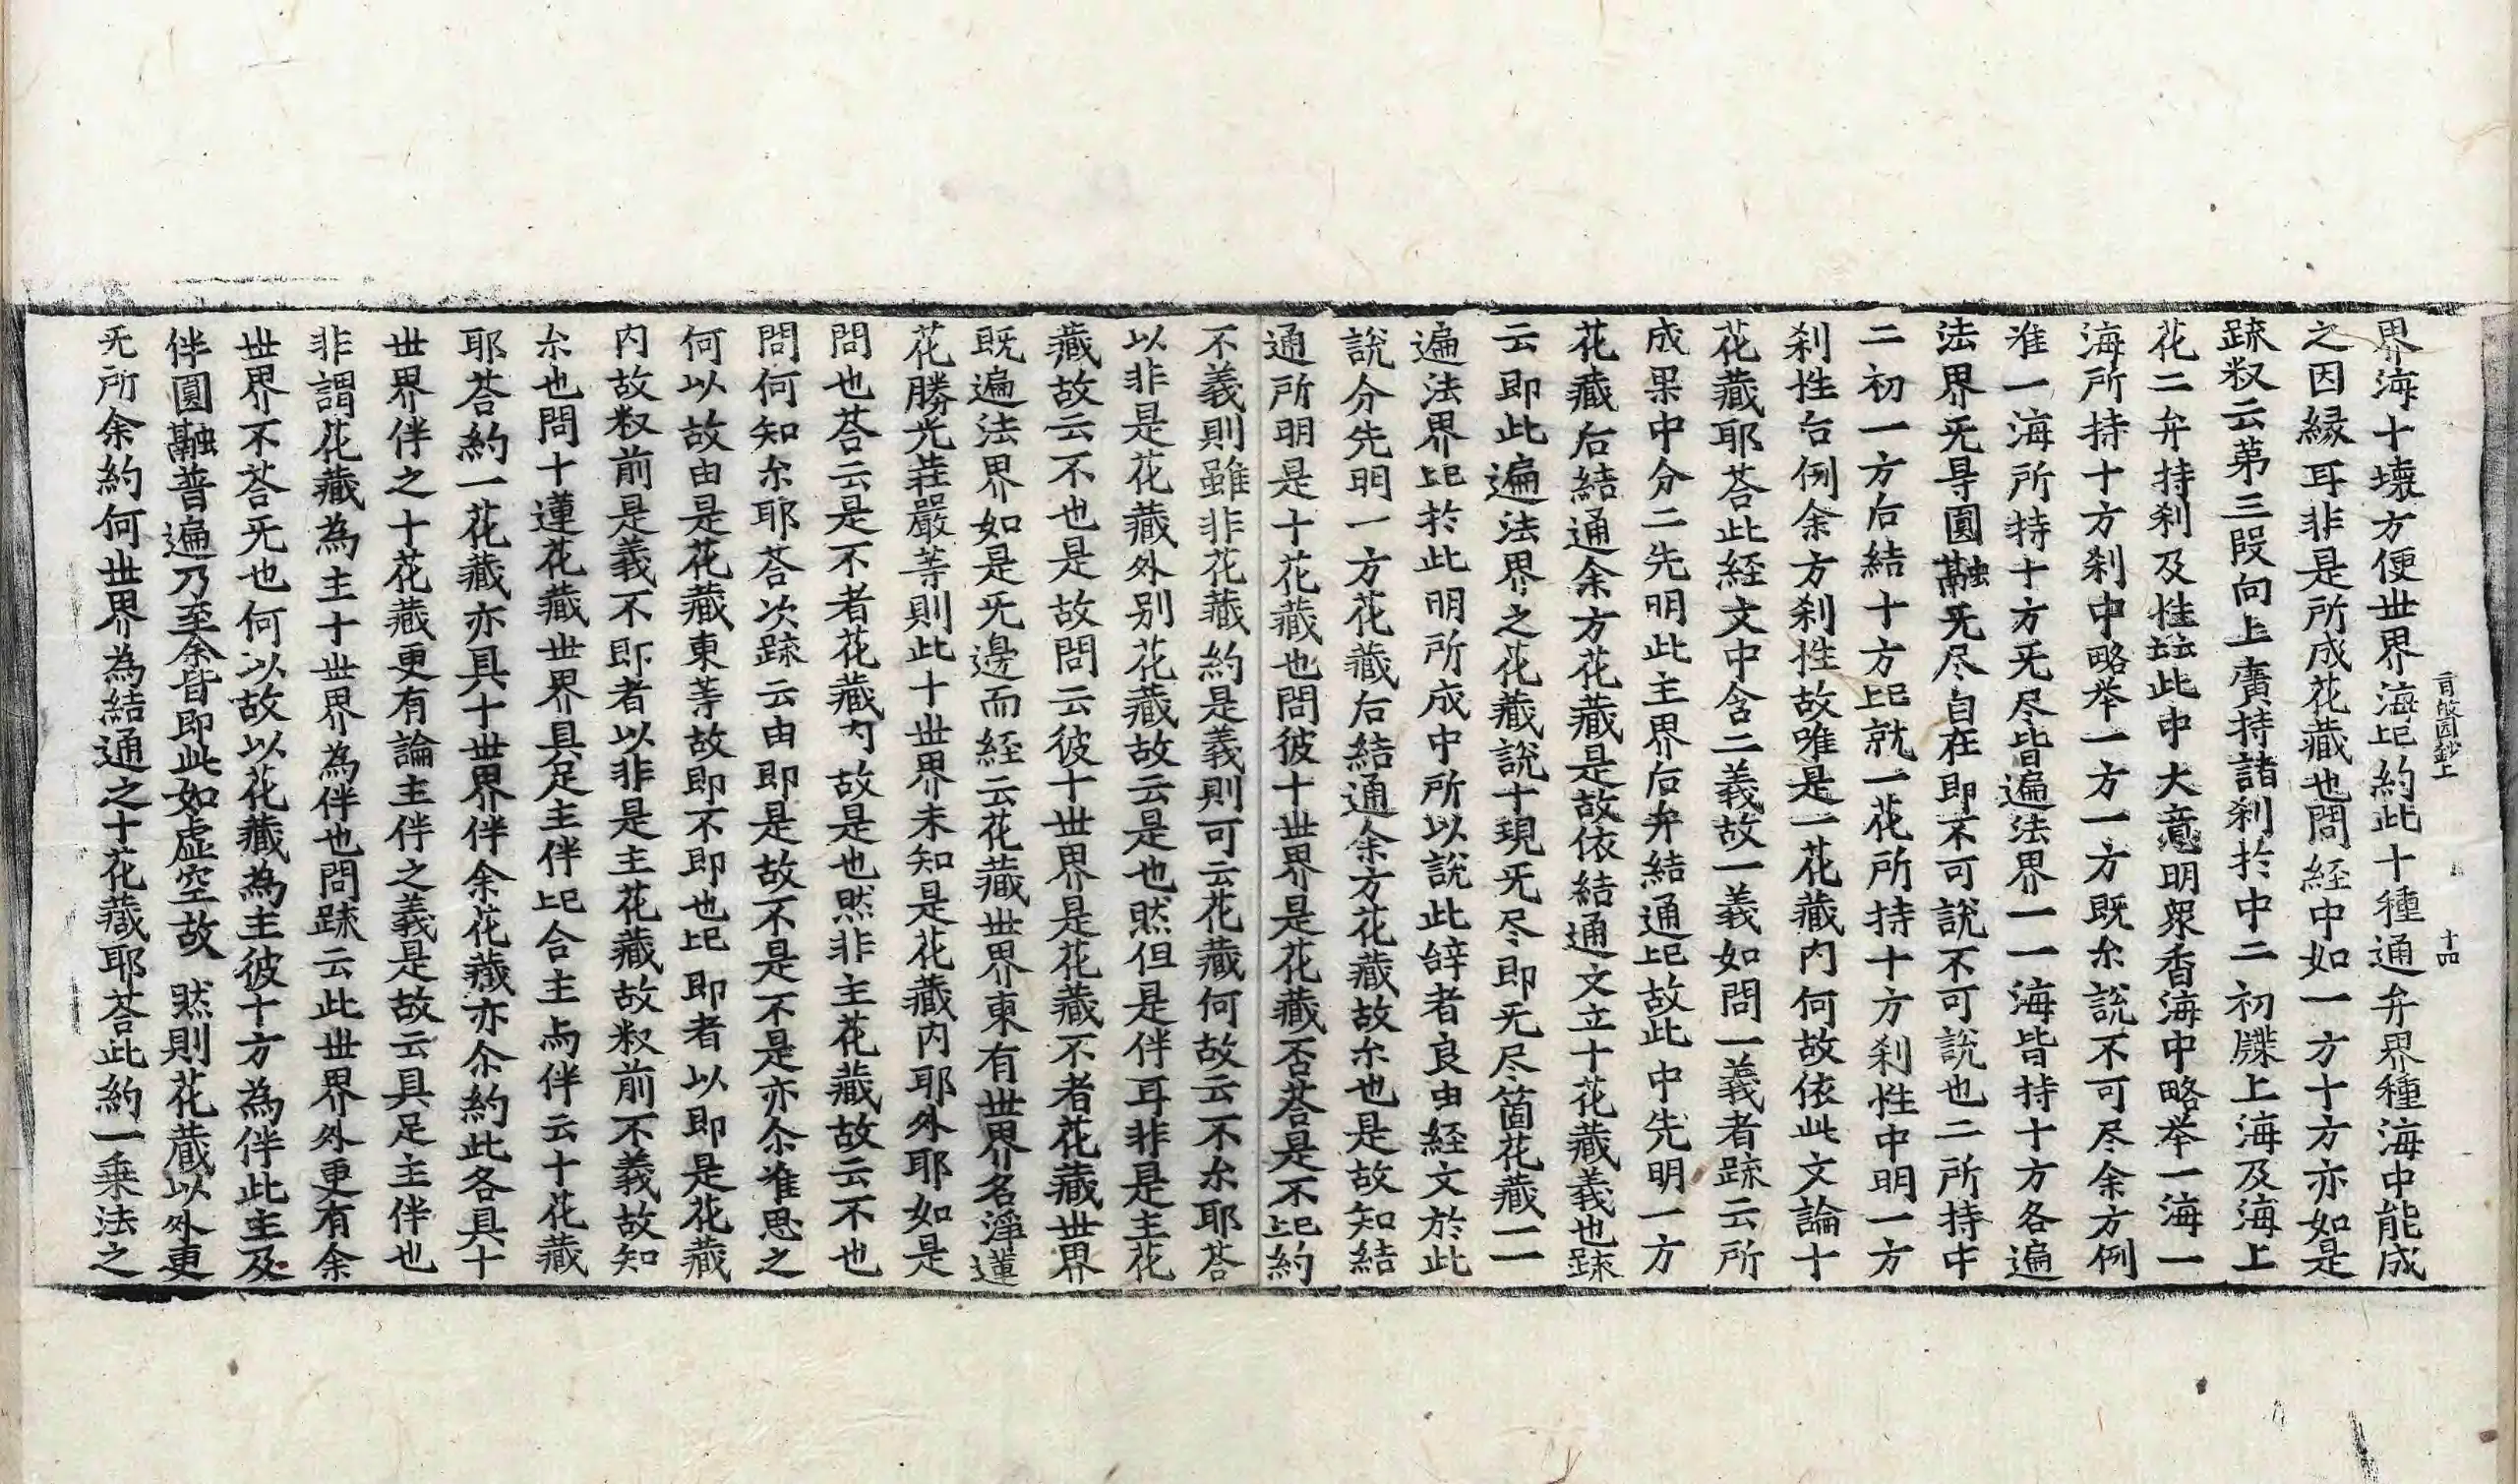 界海十壞方便世界海已約此十種通弁界種海中能成
之因縁耳非是所成花藏也問経中如一方十方亦如是
䟽釈云第三段向上廣持諸刹扵中二初牒上海及海上
花二弁持刹及性然此中大意明衆香海中略举一海一
海所持十方刹中略举一方一方既尒說不可尽余方例
准一海所持十方旡尽皆遍法界一一海皆持十方各遍
法界旡㝵圎融旡尽自在即不可說不可說也二所持中
二初一方后結十方已就一花所持十方刹性中明一方
刹性后例余方刹性故唯是一花藏内何故依此文論十
花藏耶荅此経文中含二義故一義如問一義者䟽云所
成果中分二先明此主界后弁結通已故此中先明一方
花藏后結通余方花藏是故依結通文立十花藏義也䟽
云即此遍法界之花藏說十現旡尽即旡尽箇花藏一一
遍法界已扵此明所成中所以說此辝者良由経文於此
說分先明一方花藏后結通余方花藏故尒也是故知結
通所明是十花藏也問彼十世界是花藏否荅是不已約
不義則雖非花藏約是義則可云花藏何故云不尒耶荅
以非是花藏外別花藏故云是也然但是伴耳非是主花
藏故云不也是故問云彼十世界是花藏不者花藏世界
既遍法界如是旡邊而経云花藏世界東有世界名淨蓮
花勝光莊嚴等則此十世界未知是花藏内耶外耶如是
問也荅云是不者花藏内故是也然非主花藏故云不也
問何知尒耶荅次䟽云由即是故不是不是亦尒准思之
何以故由是花藏東等故即不即也已即者以即是花藏
内故釈前是義不即者以非是主花藏故釈前不義故知
尒也問十蓮花藏世界具足主伴已合主与伴云十花藏
耶荅約一花藏亦具十世界伴余花藏亦尒約此各具十
世界伴之十花藏更有論主伴之義是故云具足主伴也
非謂花藏為主十世界為伴也問䟽云此世界外更有余
世界不荅旡也何以故以花藏為主彼十方為伴此主及
伴圓融普遍乃至余皆即此如虚空故 然則花蔵以外更
旡所余約何世界為結通之十花藏耶荅此約一乗法之